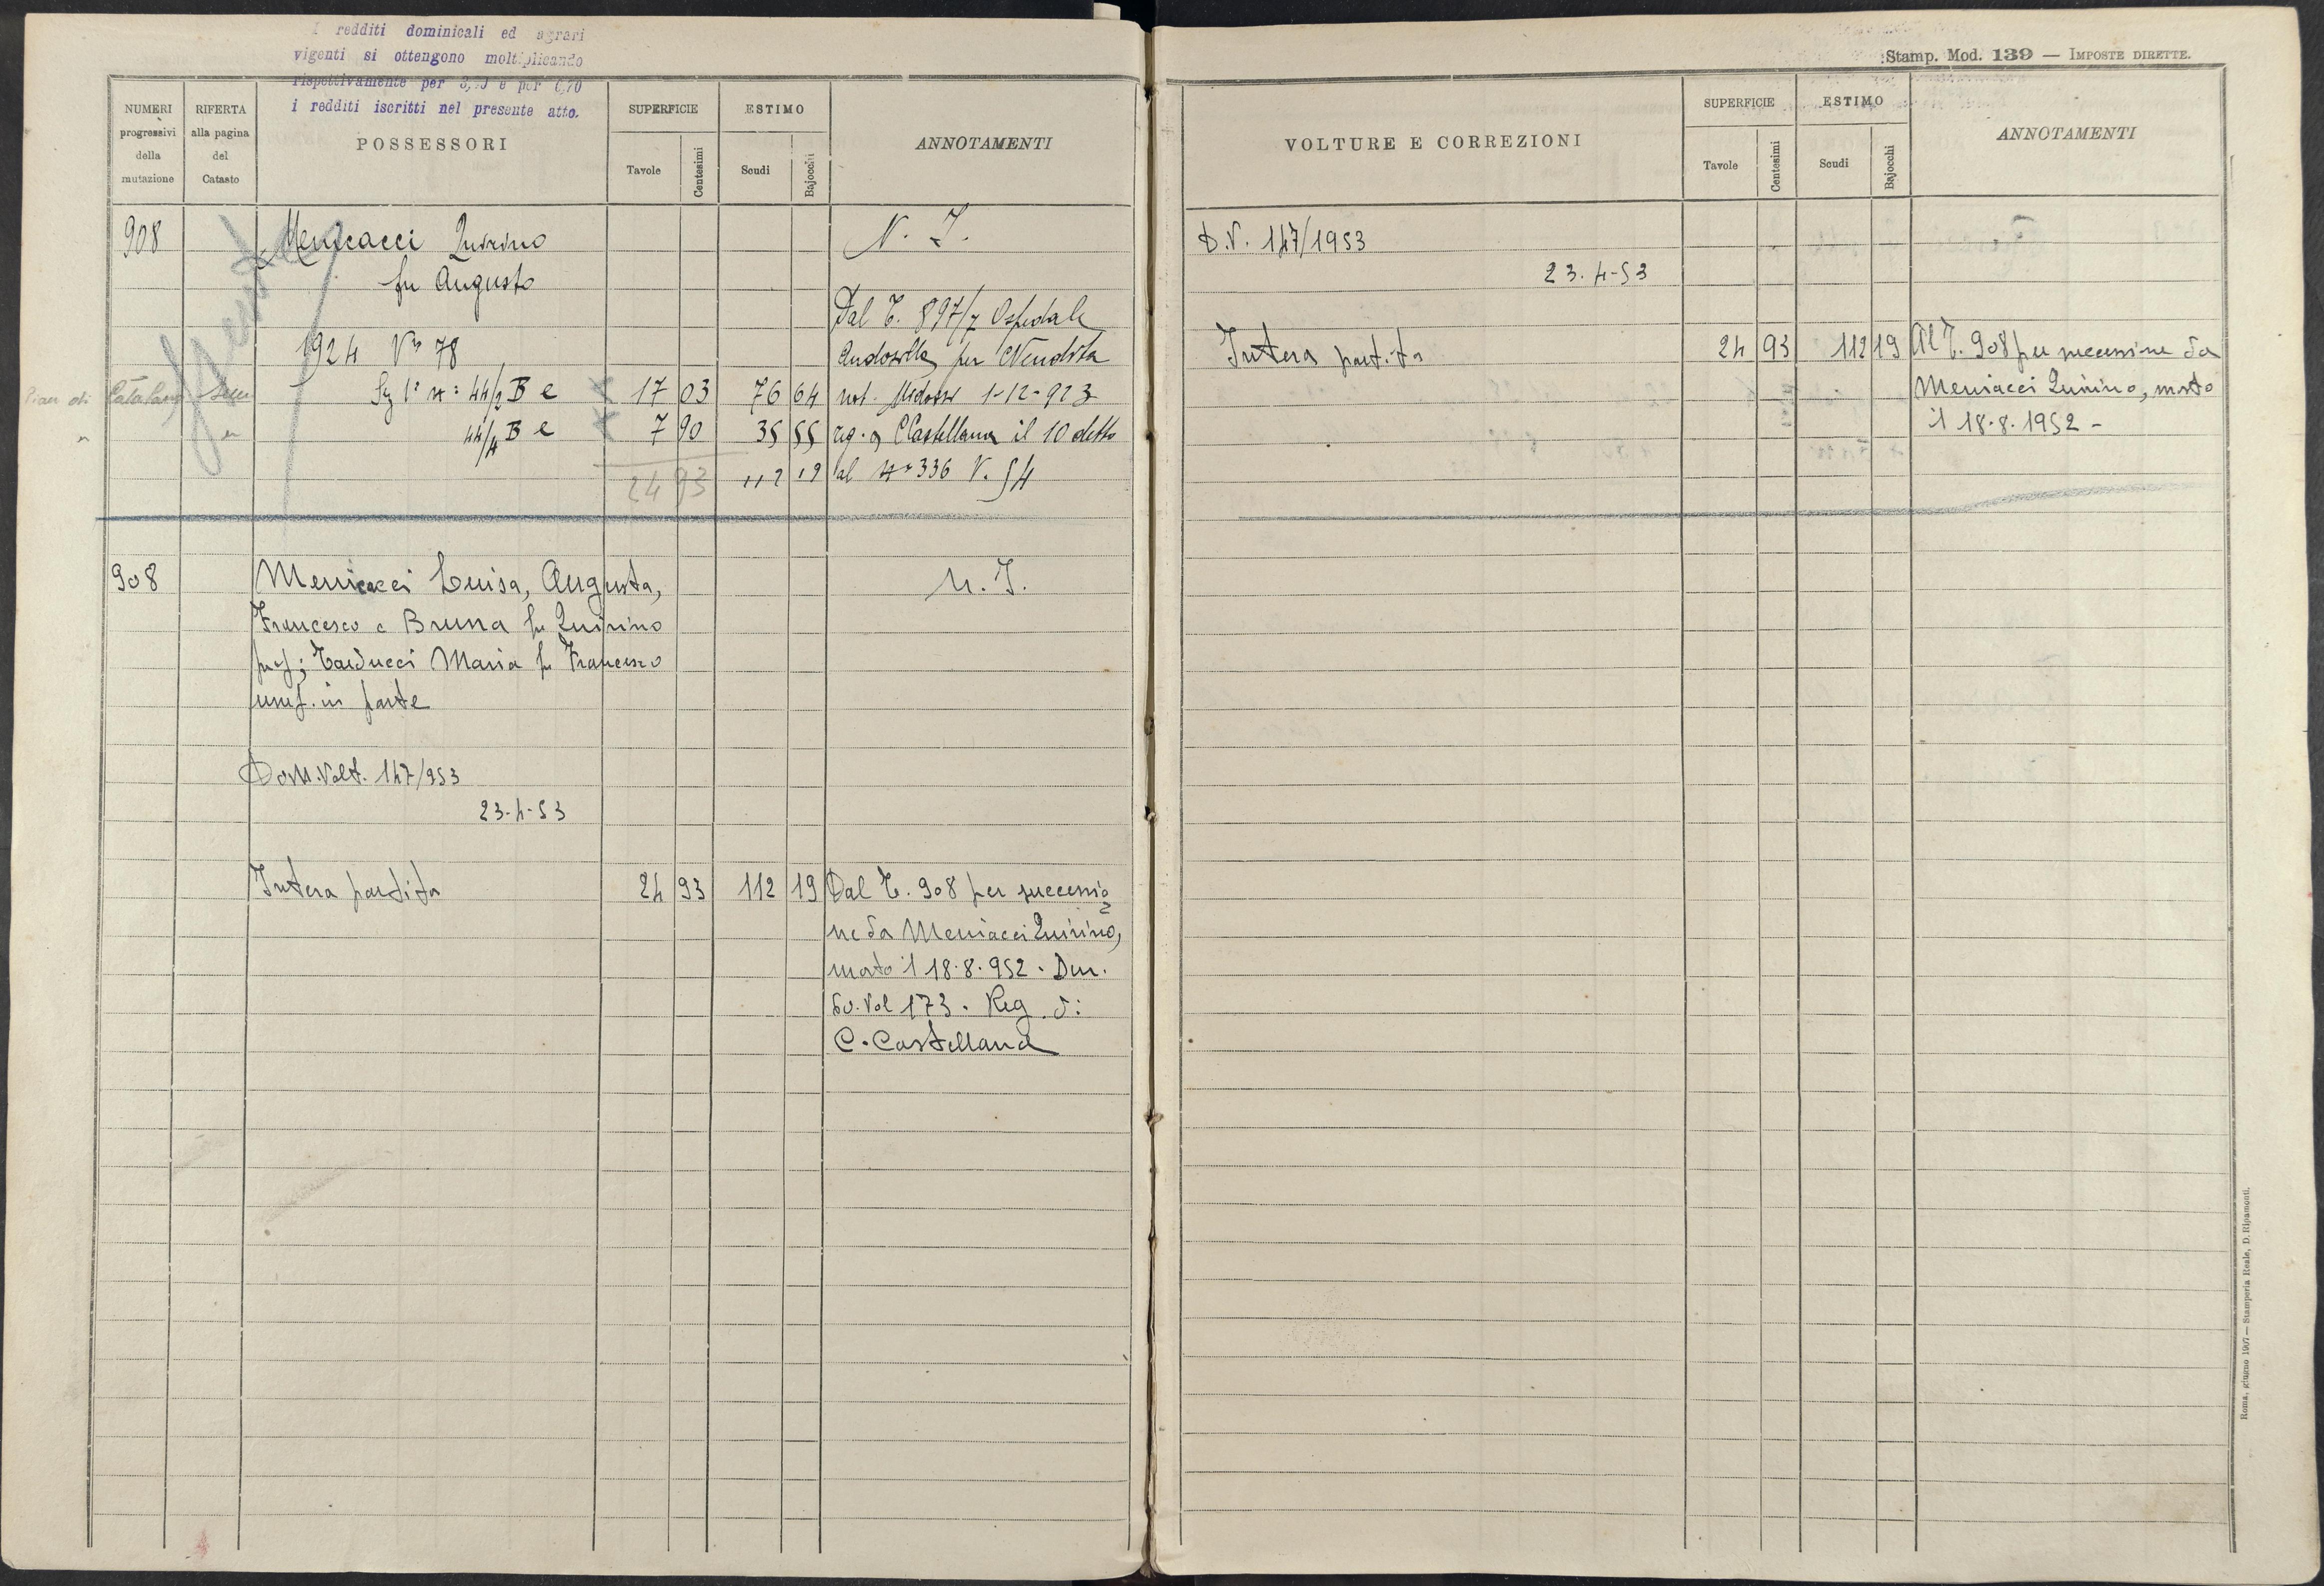 I redditi dominicali ed agrari
vigenti si ottengono moltiplicando
rispettivamente per e per 0,70
i redditi iscritti nel presente atto.
NUMERI
progressivi
della
mutazione
RIFERTA
alla pagina
del
Catasto
POSSESSORI
SUPERFICIE
Tavole
Centesimi
ESTIMO
Scudi
Bajocchi
ANNOTAMENTI
908
Menicacci Quirino
N. I.
fu Augusto
Dal T. 897/7 Ospedale
1924 Vª 78
Andosilla per Vendita
Pian di Catalano Sem
Sez 1ª Nº 44/2 B e 17 03 76 64 not. Midossi 1-12-923
" " 44/4 B e 7 90 35 55 reg. a CCastellana il 10 detto
24 93 112 19 al Nº 336 V. 54
908
Menicacci Luisa, Augusta,
N. I.
Francesco e Bruna fu Quirino
prof; Carducci Maria fu Francesco
usuf. in parte
Dom. Volt. 147/953
23-4-53
Intera partita 24 93 112 19 Dal T. 908 per successio
ne da Meniacci Quirino,
morto il 18.8.952. Den.
Vol 173. Reg. di
C. Castellana
Stamp. Mod. 139 — IMPOSTE DIRETTE.
VOLTURE E CORREZIONI
SUPERFICIE
Tavole
Centesimi
ESTIMO
Scudi
Bajocchi
ANNOTAMENTI
D.V. 147/1953
23.4-53
Intera partita 24 93 112 19 Al T. 908 per successione da
Meniacci Quirino, morto
il 18.8.1952 -
Roma, giugno 1907 — Stamperia Reale, D. Ripamonti.